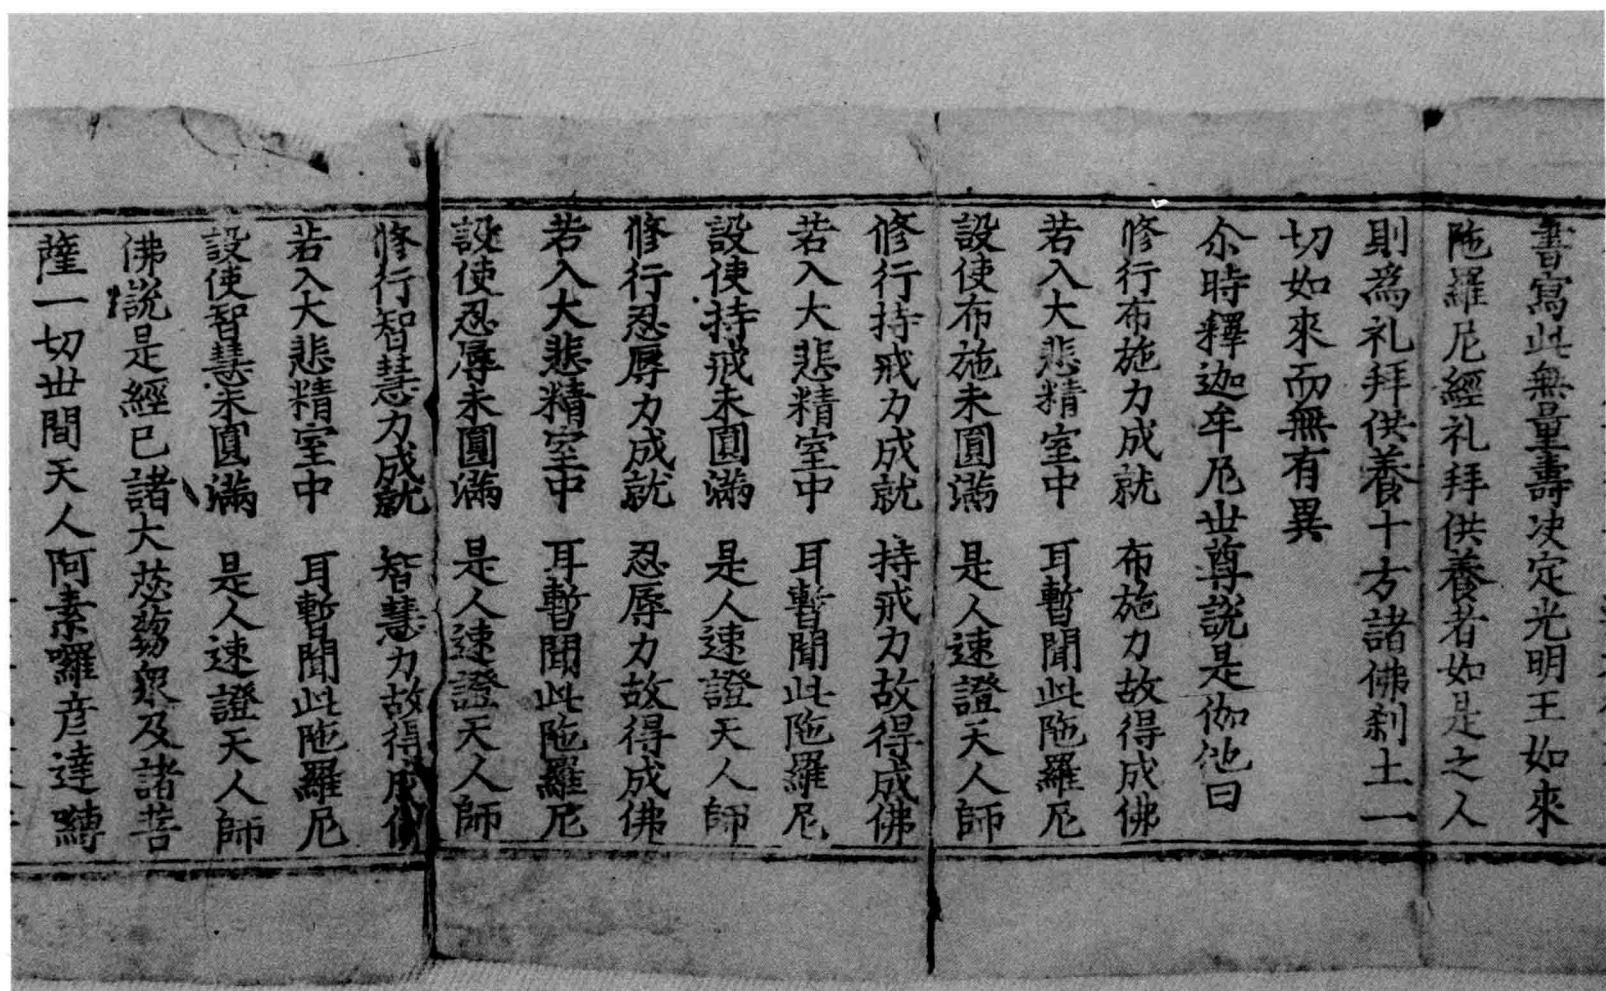 書寫此無量壽決定光明王如來
陁羅尼經礼拜供養者如是之人
則爲礼拜供養十方諸佛刹土一
切如來而無有異
尒時釋迦牟尼世尊說是伽他曰
修行布施力成就　布施力故得成佛
若入大悲精室中　耳暫聞此陁羅尼
設使布施未圓滿　是人速證天人師
修行持戒力成就　持戒力故得成佛
若入大悲精室中　耳暫聞此陁羅尼
設使持戒未圓滿　是人速證天人師
修行忍辱力成就　忍辱力故得成佛
若入大悲精室中　耳暫聞此陁羅尼
設使忍辱未圓滿　是人速證天人師
修行智慧力成就　智慧力故得成佛
若入大悲精室中　耳暫聞此陁羅尼
設使智慧未圓滿　是人速證天人師
佛說是經已諸大苾蒭衆及諸菩
薩一切世間天人阿素囉彦達嚩